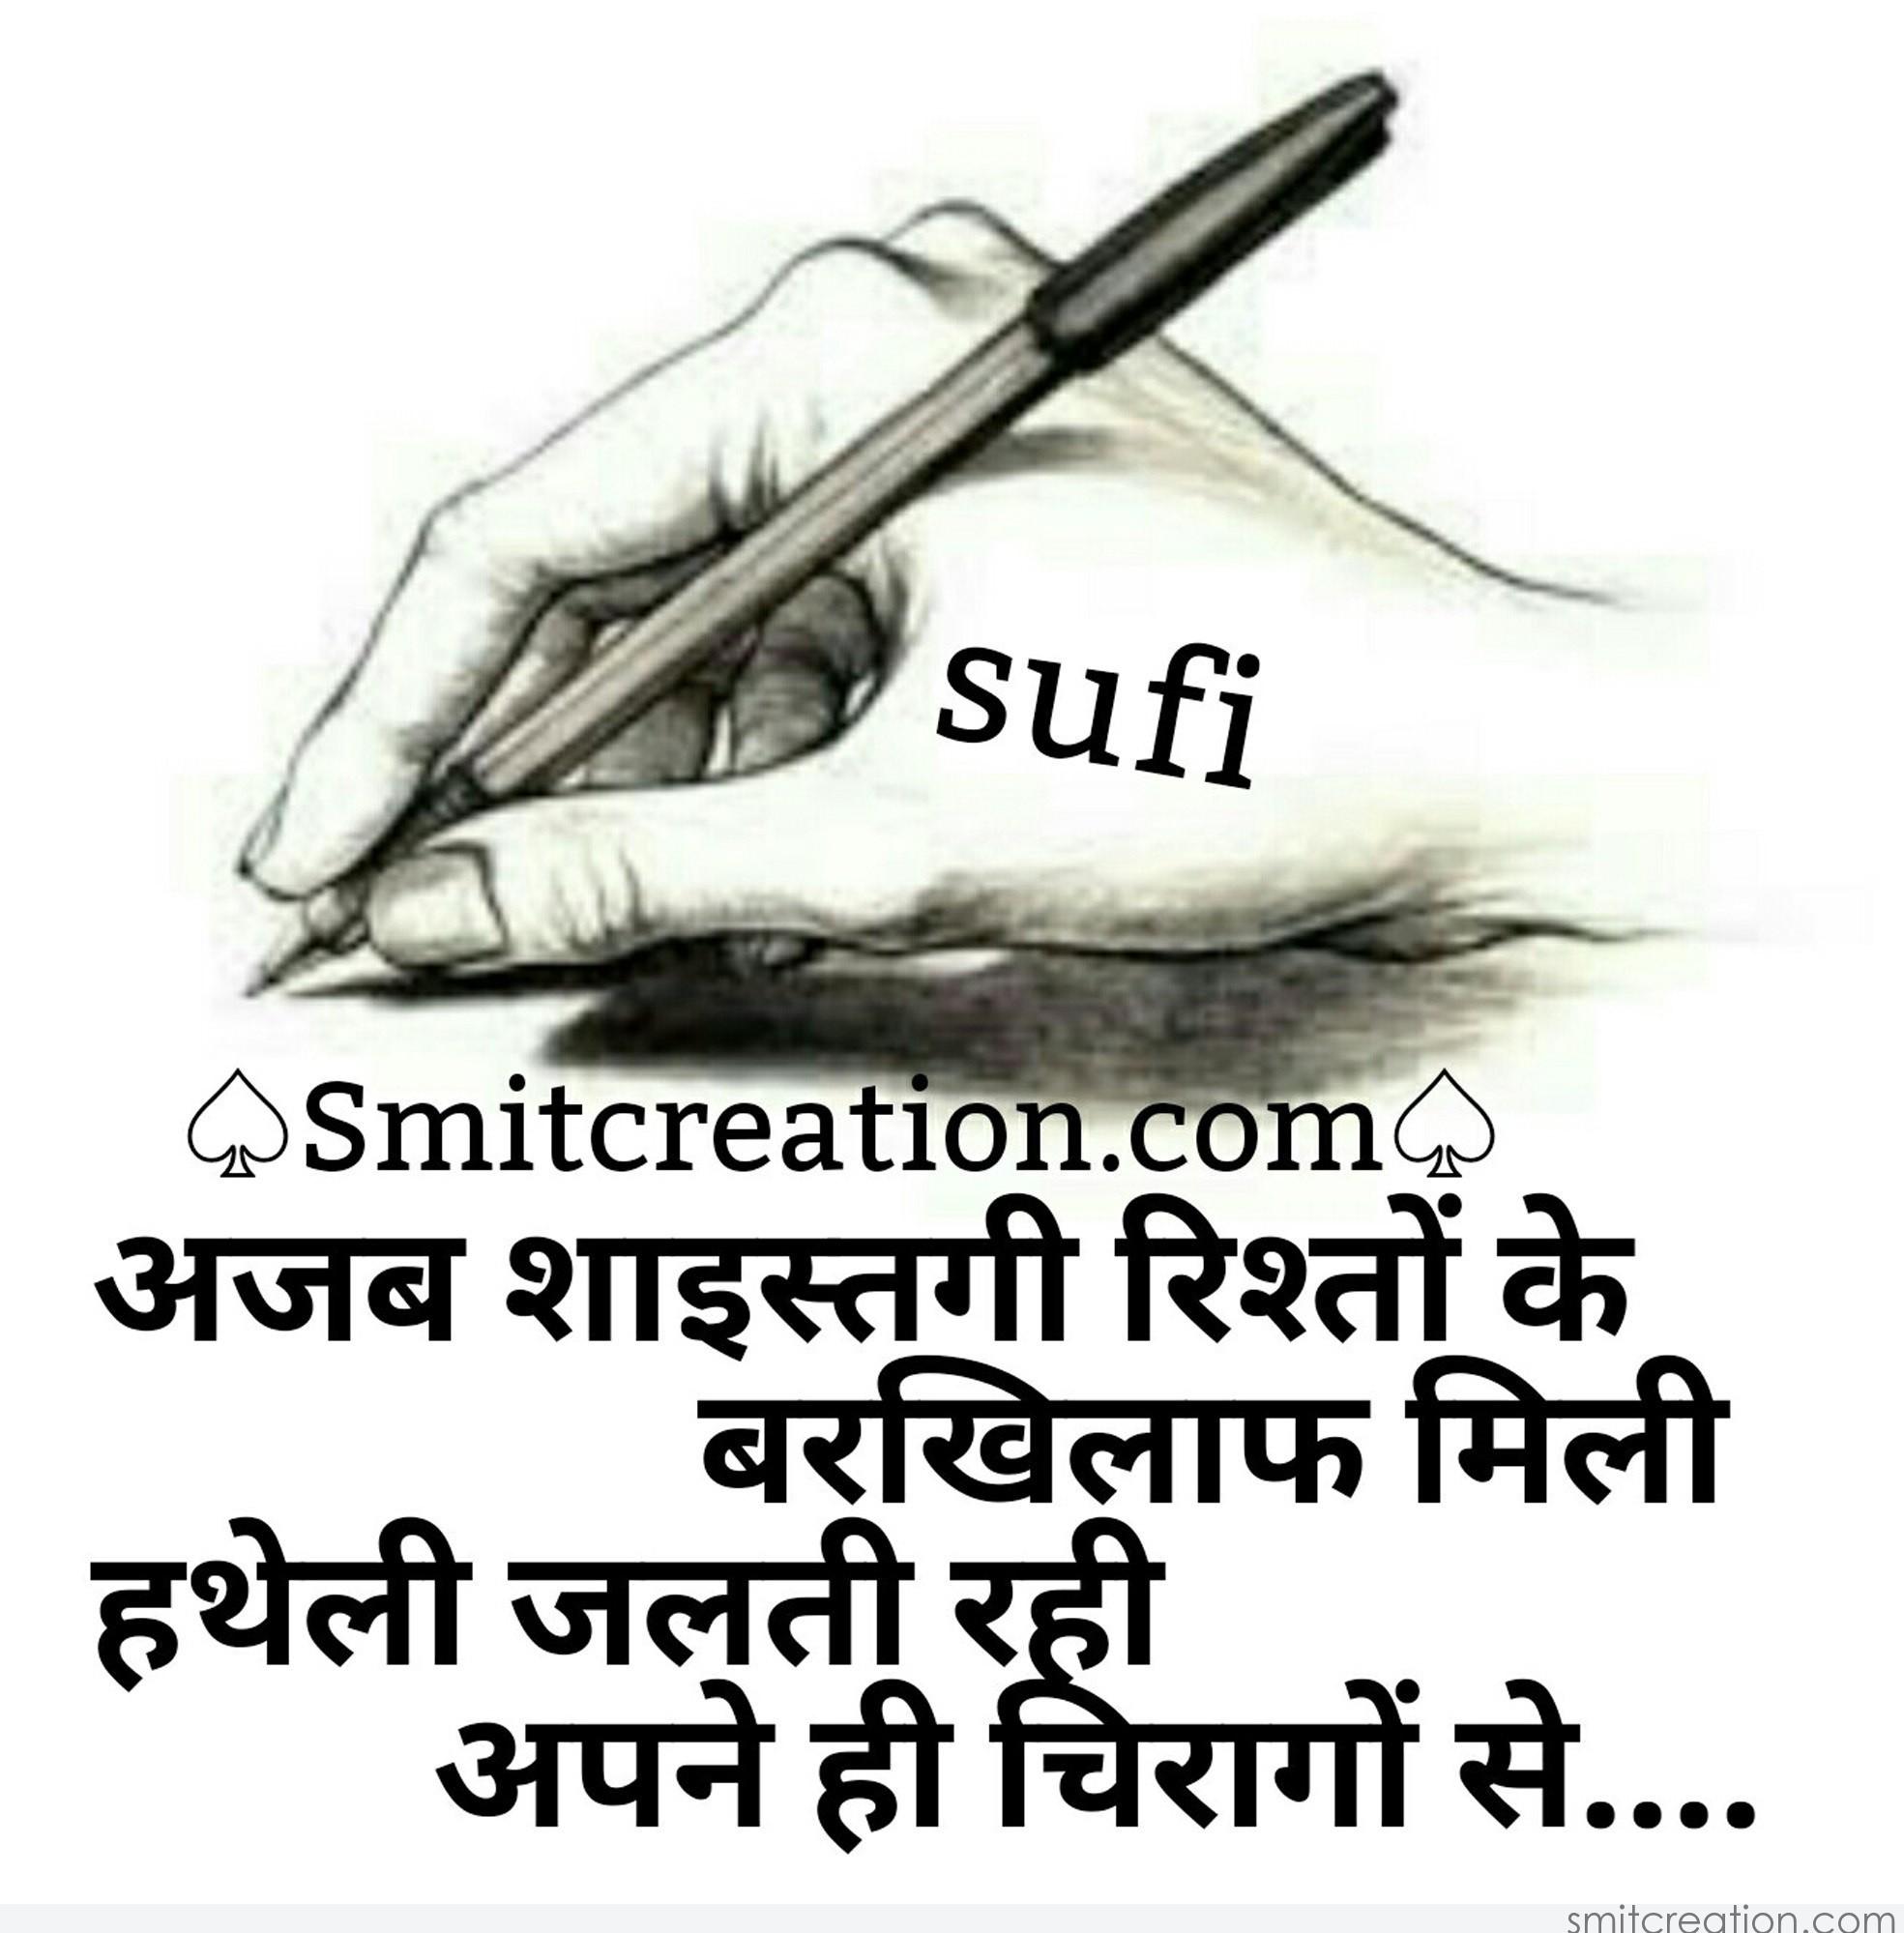 sufi
♤Smitcreation.com♤
अजब शाइस्तगी रिश्तों के
बरखिलाफ मिली
हथेली जलती रही
अपने ही चिरागों से....
smitcreation.com